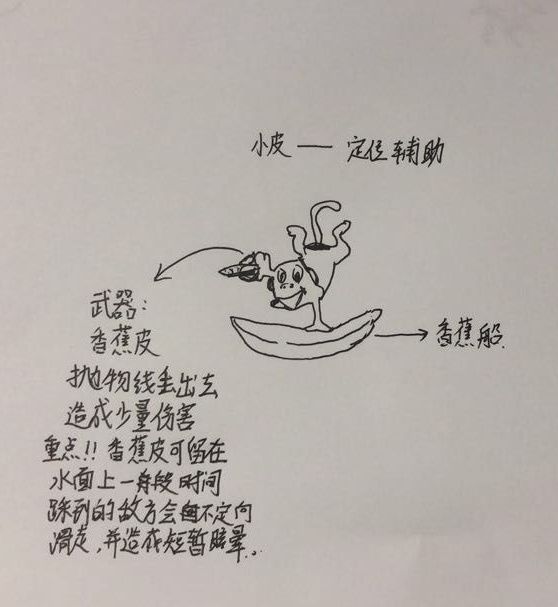 小皮 — 定位辅助
武器：
香蕉皮
抛物线丢出去
造成少量伤害
重点!! 香蕉皮可留在
水面上一段时间
踩到的敌方会向不定向
滑走，并造成短暂晕晕..
香蕉船